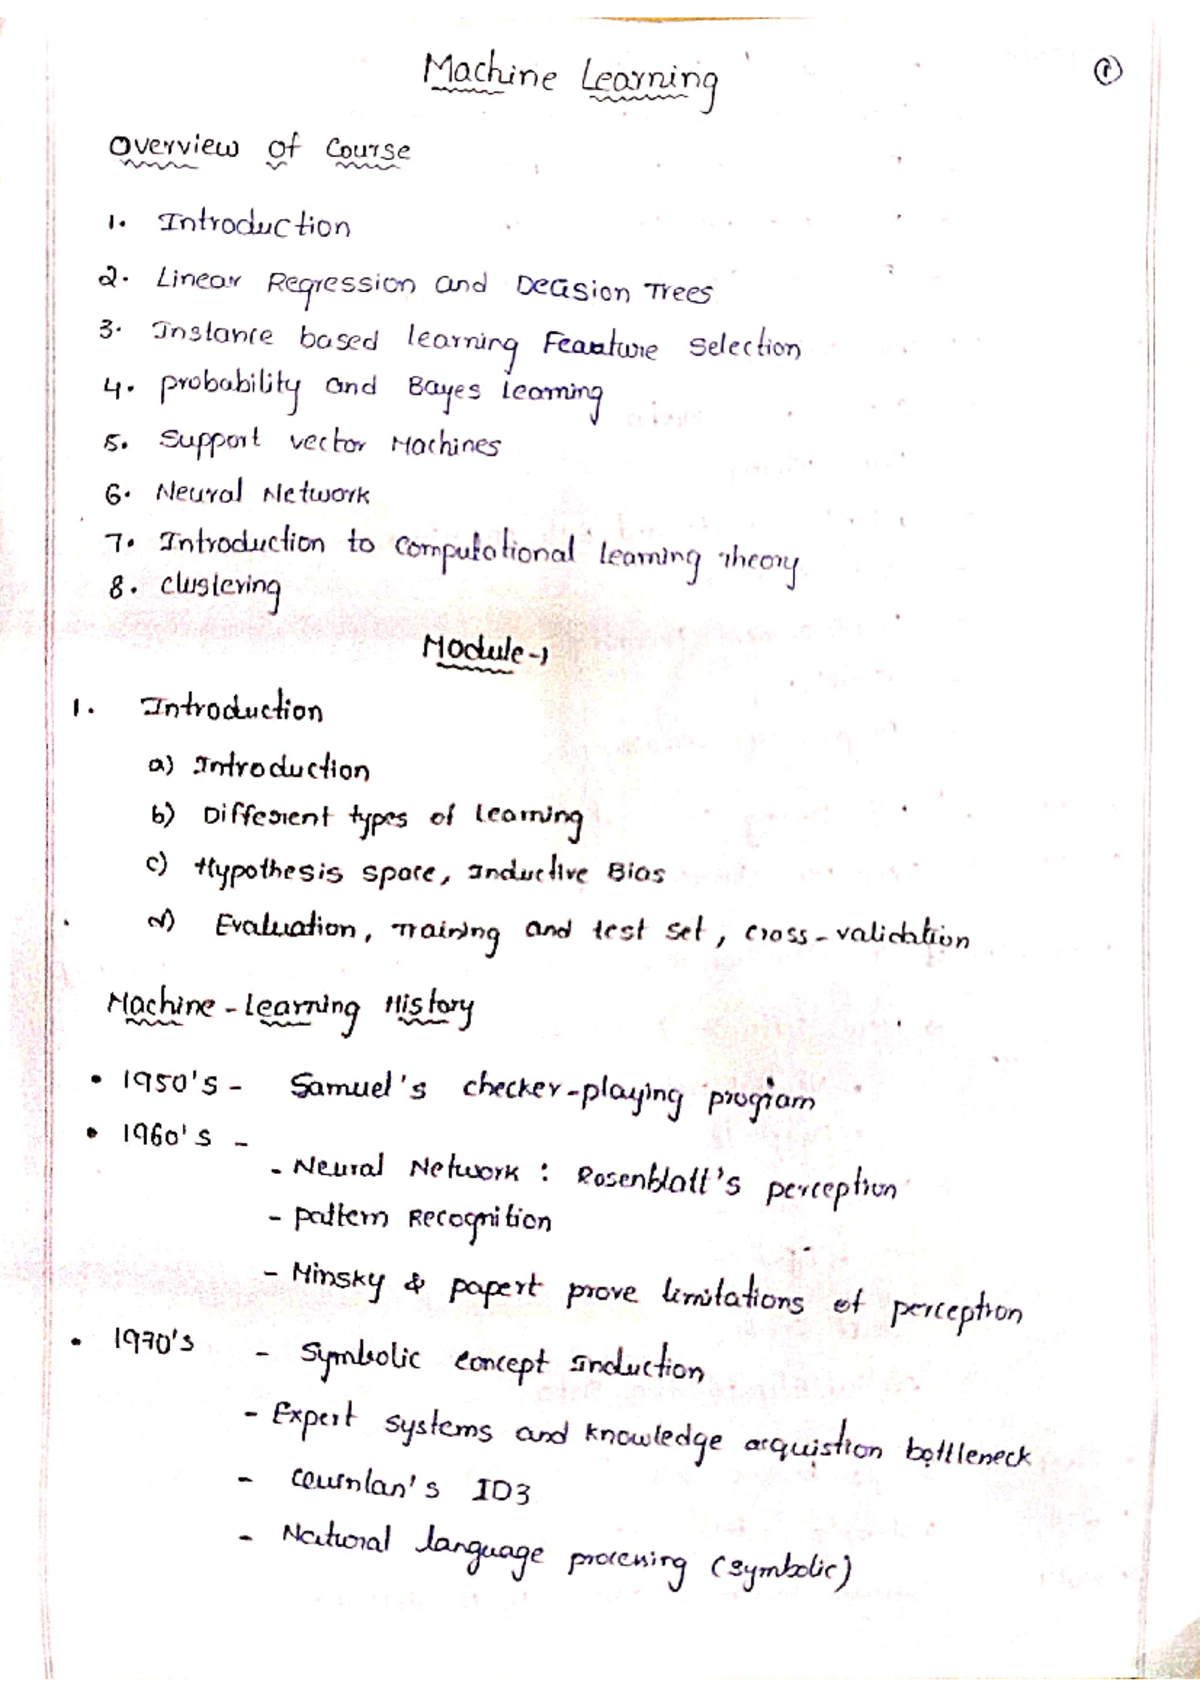 Machine Learning
1
Overview of Course
1. Introduction
2. Linear Regression and Decision Trees
3. Instance based learning Feauture Selection
4. probability and Bayes learning
5. Support vector Machines
6. Neural Network
7. Introduction to Computational learning Theory
8. clustering
Module-1
1. Introduction
a) Introduction
b) Different types of learning
c) Hypothesis space, Inductive Bias
d) Evaluation, Training and test set, cross-validation
Machine-Learning History
• 1950's - Samuel's checker-playing program
• 1960's -
- Neural Network : Rosenblatt's perception
- pattern Recognition
- Minsky & papert prove limitations of perception
• 1970's - Symbolic concept Induction
- Expert systems and knowledge acquistion bottleneck
- ID3
- Natural language processing (symbolic)